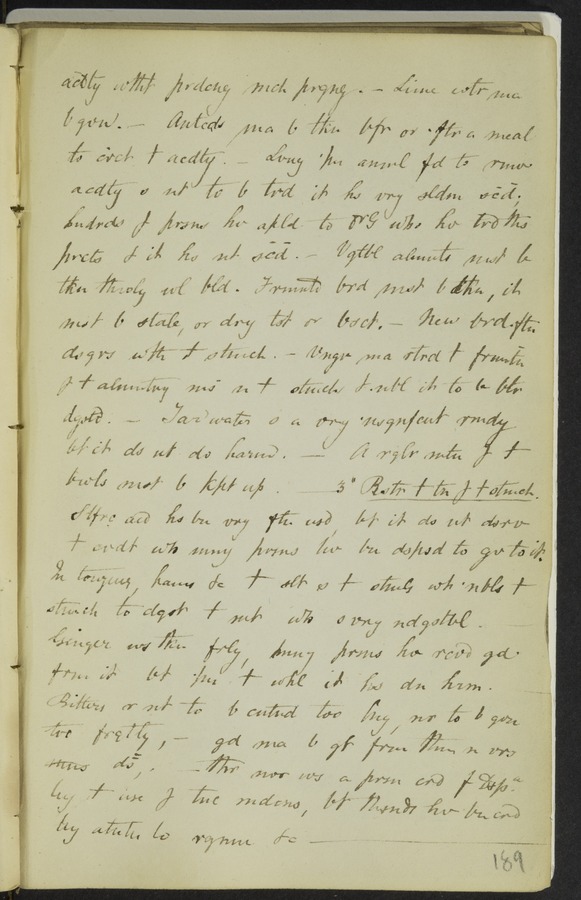 acdty wtht prdcng mch prgng. – Lime wtr ma
b gvn. – Antcds ma b tkn bfr or aftr a meal
to crct t acdty. – Lvng on anml fd to rmov
acdty s nt to b trd it hs vry sldm scd;
hndrds f prsns hv apld to Dr G who hv trd ths
prcts & it hs nt scd. – Vgtbl almnts mst b
tkn thrwly wl bld. Frmntd brd mst b tkn, it
mst b stale, or dry tst or bsct. – New brd oftn
dsgrs wth t stmch. – Vngr ma rtrd t frmntn
f t almntry ms n t stmch & nbl it to b btr
dgstd. – Tar water s a vry insgnfcnt rmdy
bt it ds nt do harm. – A rglr mtn f t
bwls mst b kpt up. – 3° Rstr t tn f t stmch.
Slfrc acd hs bn vry oftn usd, bt it ds nt dsrv
t crdt wh mny prsns hv bn dspsd to gv to it.
In tongues, hams &c t slt s t stmls wh inbls t
stmch to dgst t mt wh s vry ndgstbl.
Ginger ws tkn frly, mny prsns hv rcvd gd
frm it bt on t whl it hs dn hrm.
Bitters r nt to b cntnd too lng, nr to b gvn
too frqtly, – gd ma b gt frm thm n vrs
ds, – Thr nvr ws a prsn crd f Dsps.ª
by t use f tnc mdcns, bt thsnds hv bn crd
by atntn to rgmn &c
189